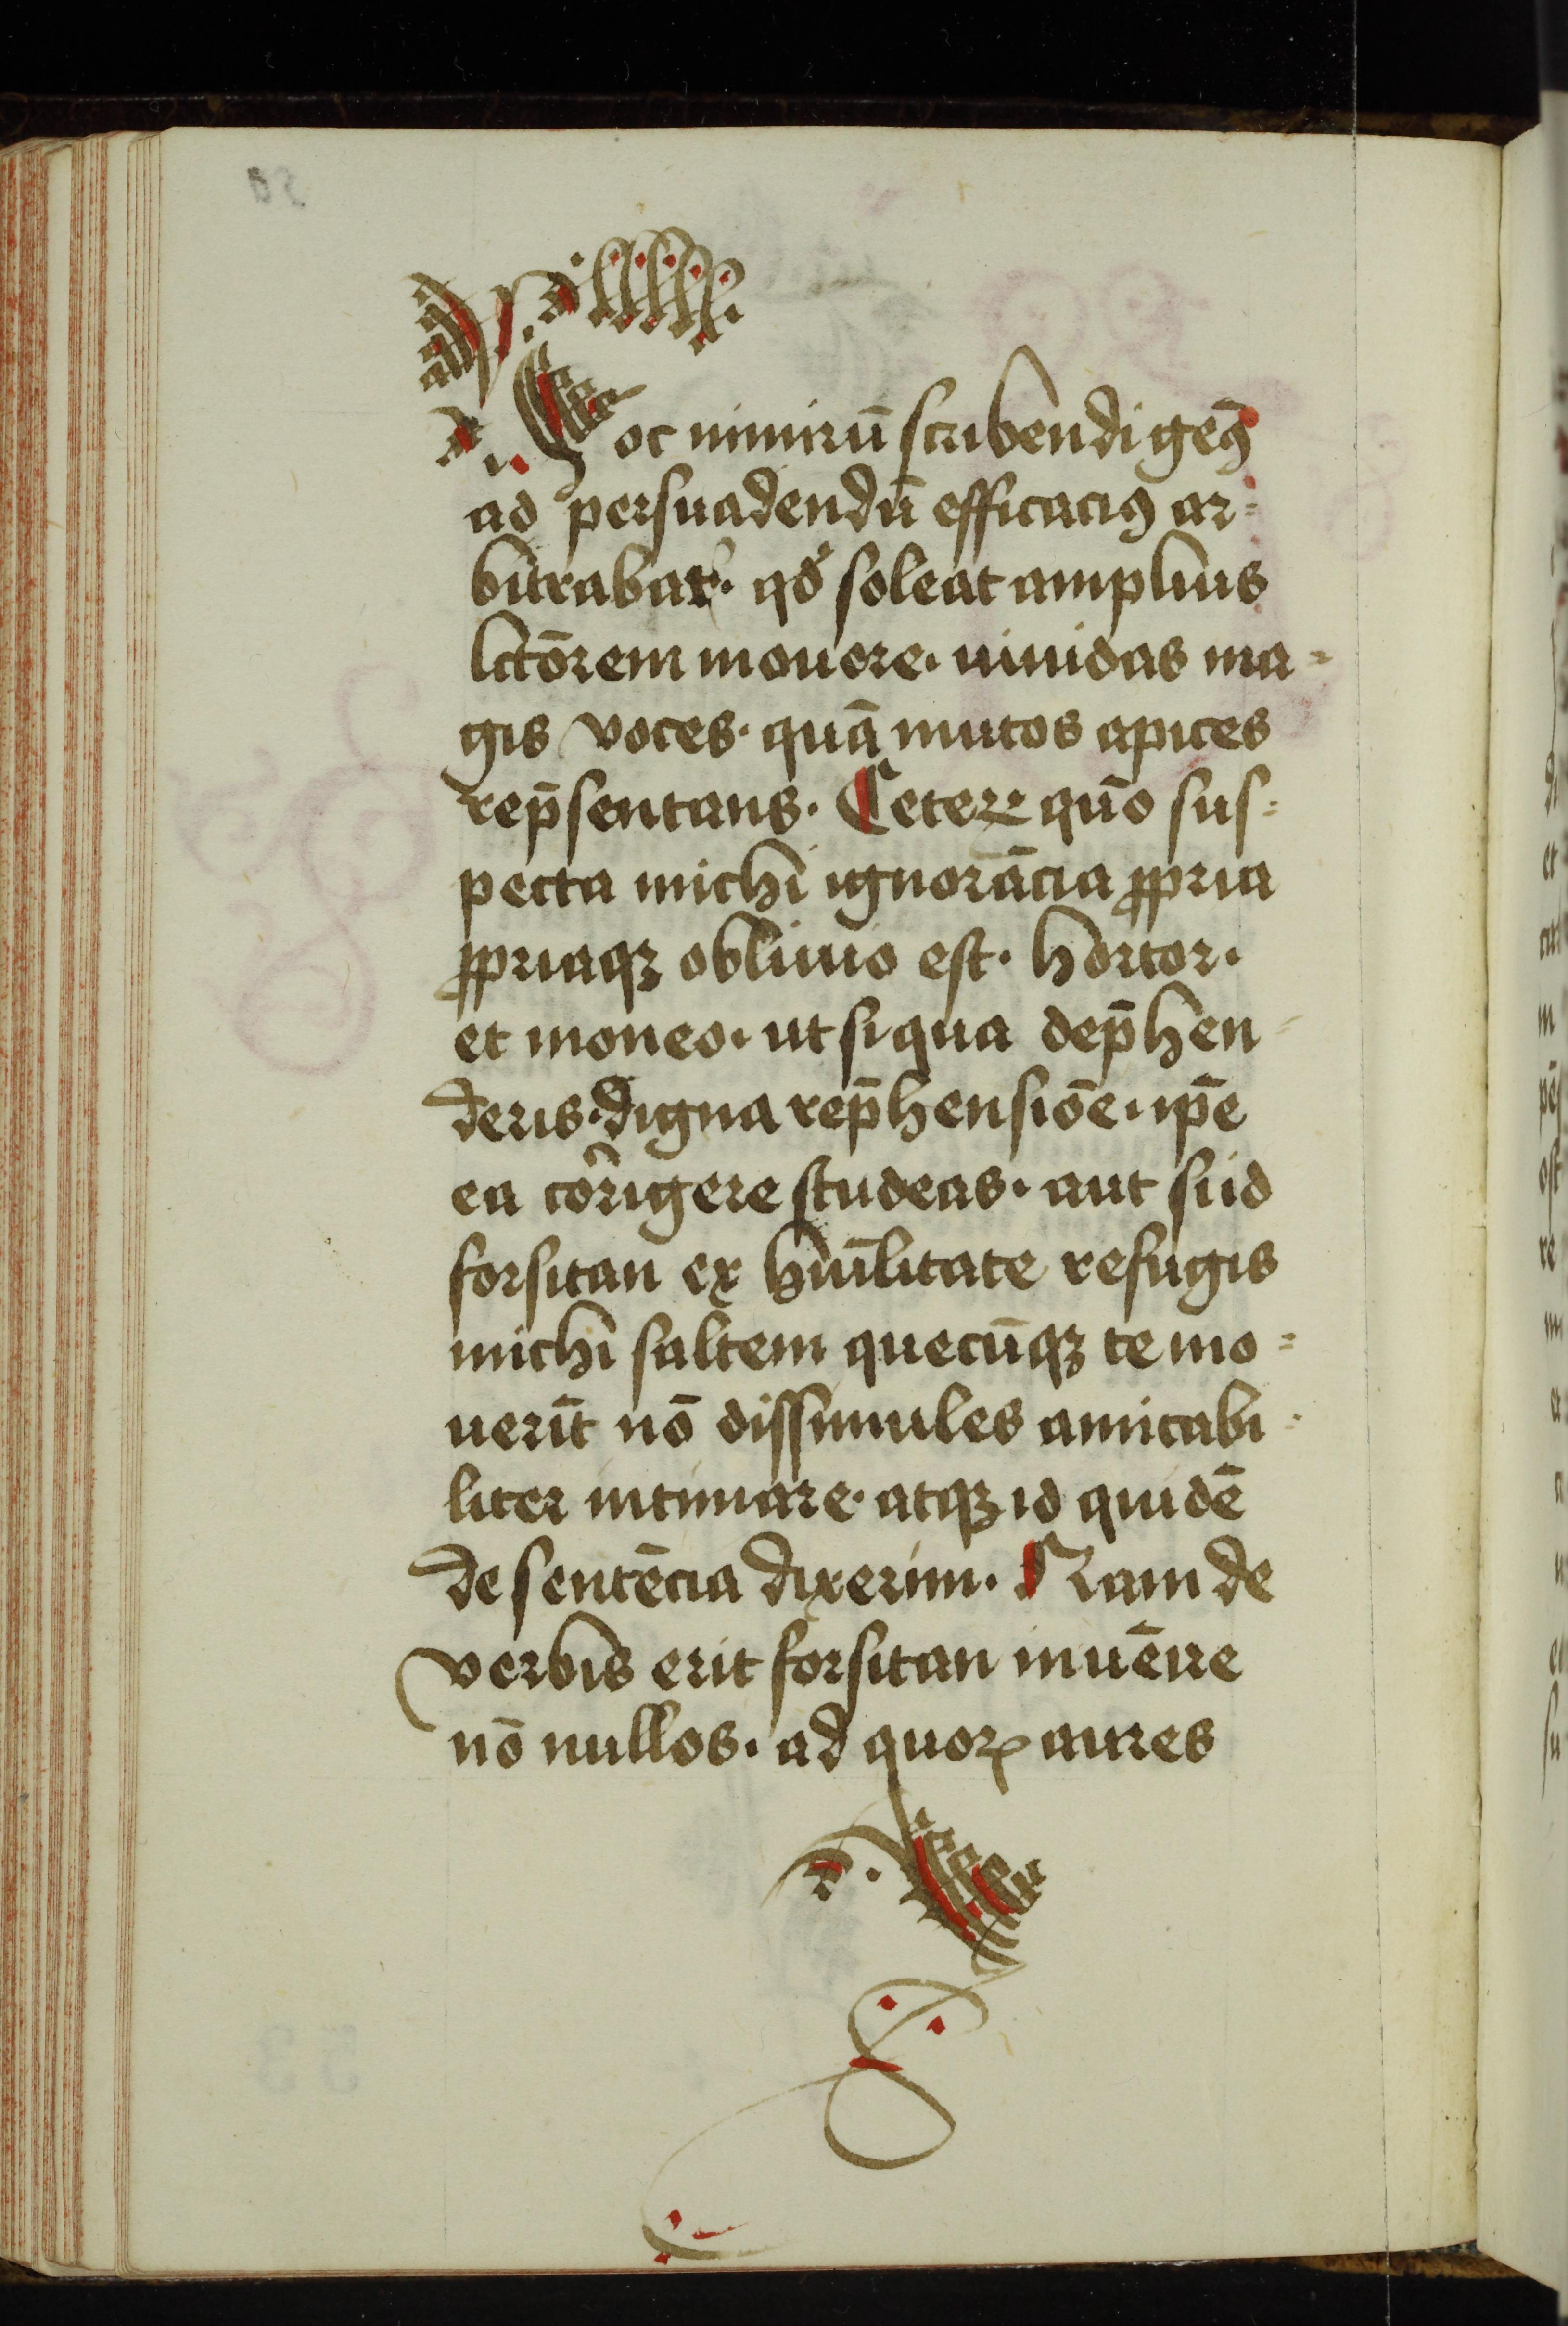 Hoc nimirū scribendi geꝰ
ad persuadendū efficaciꝰ ar=
bitrabar. qđ soleat amplius
lctōrem mouere. uiuidas ma=
gis voces. quā mutos apices
rep̄sentans. Ceteꝝ quō sus=
pecta michi ignorācia ꝓpria
ꝓpriaqꝫ obliuio est. hortor.
et moneo. ut si qua dep̄hen=
deris. digna rep̄hensiōe. ip̄e
ea cōrigere studeas. aut si id
forsitan ex hūilitate refugis
michi saltem quecūqꝫ te mo=
uerīt nō dissimules amicabi=
liter intimare. atqꝫ id quidē
de sentēcia dixerim. Nam de
verbis erit forsitan inuēire
nō nullos. ad quoꝝ aures
53